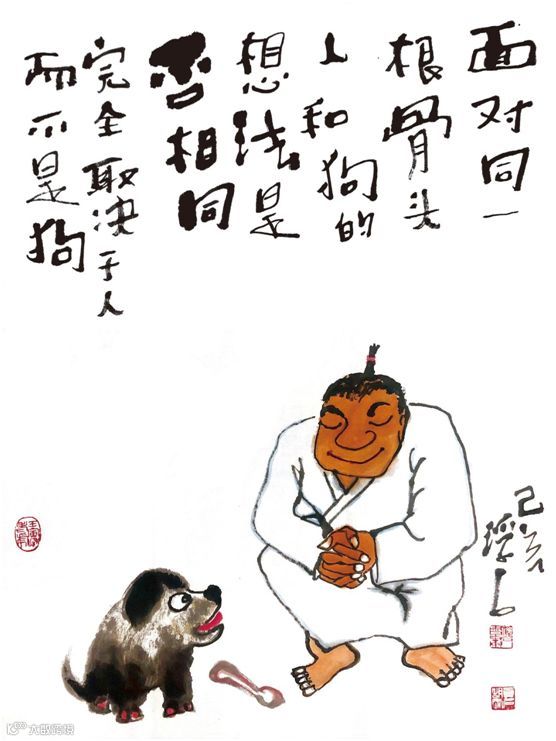 面对同一
根骨头
人和狗的
想法是
否相同
完全取决于人
而不是狗
己亥
大数跨境